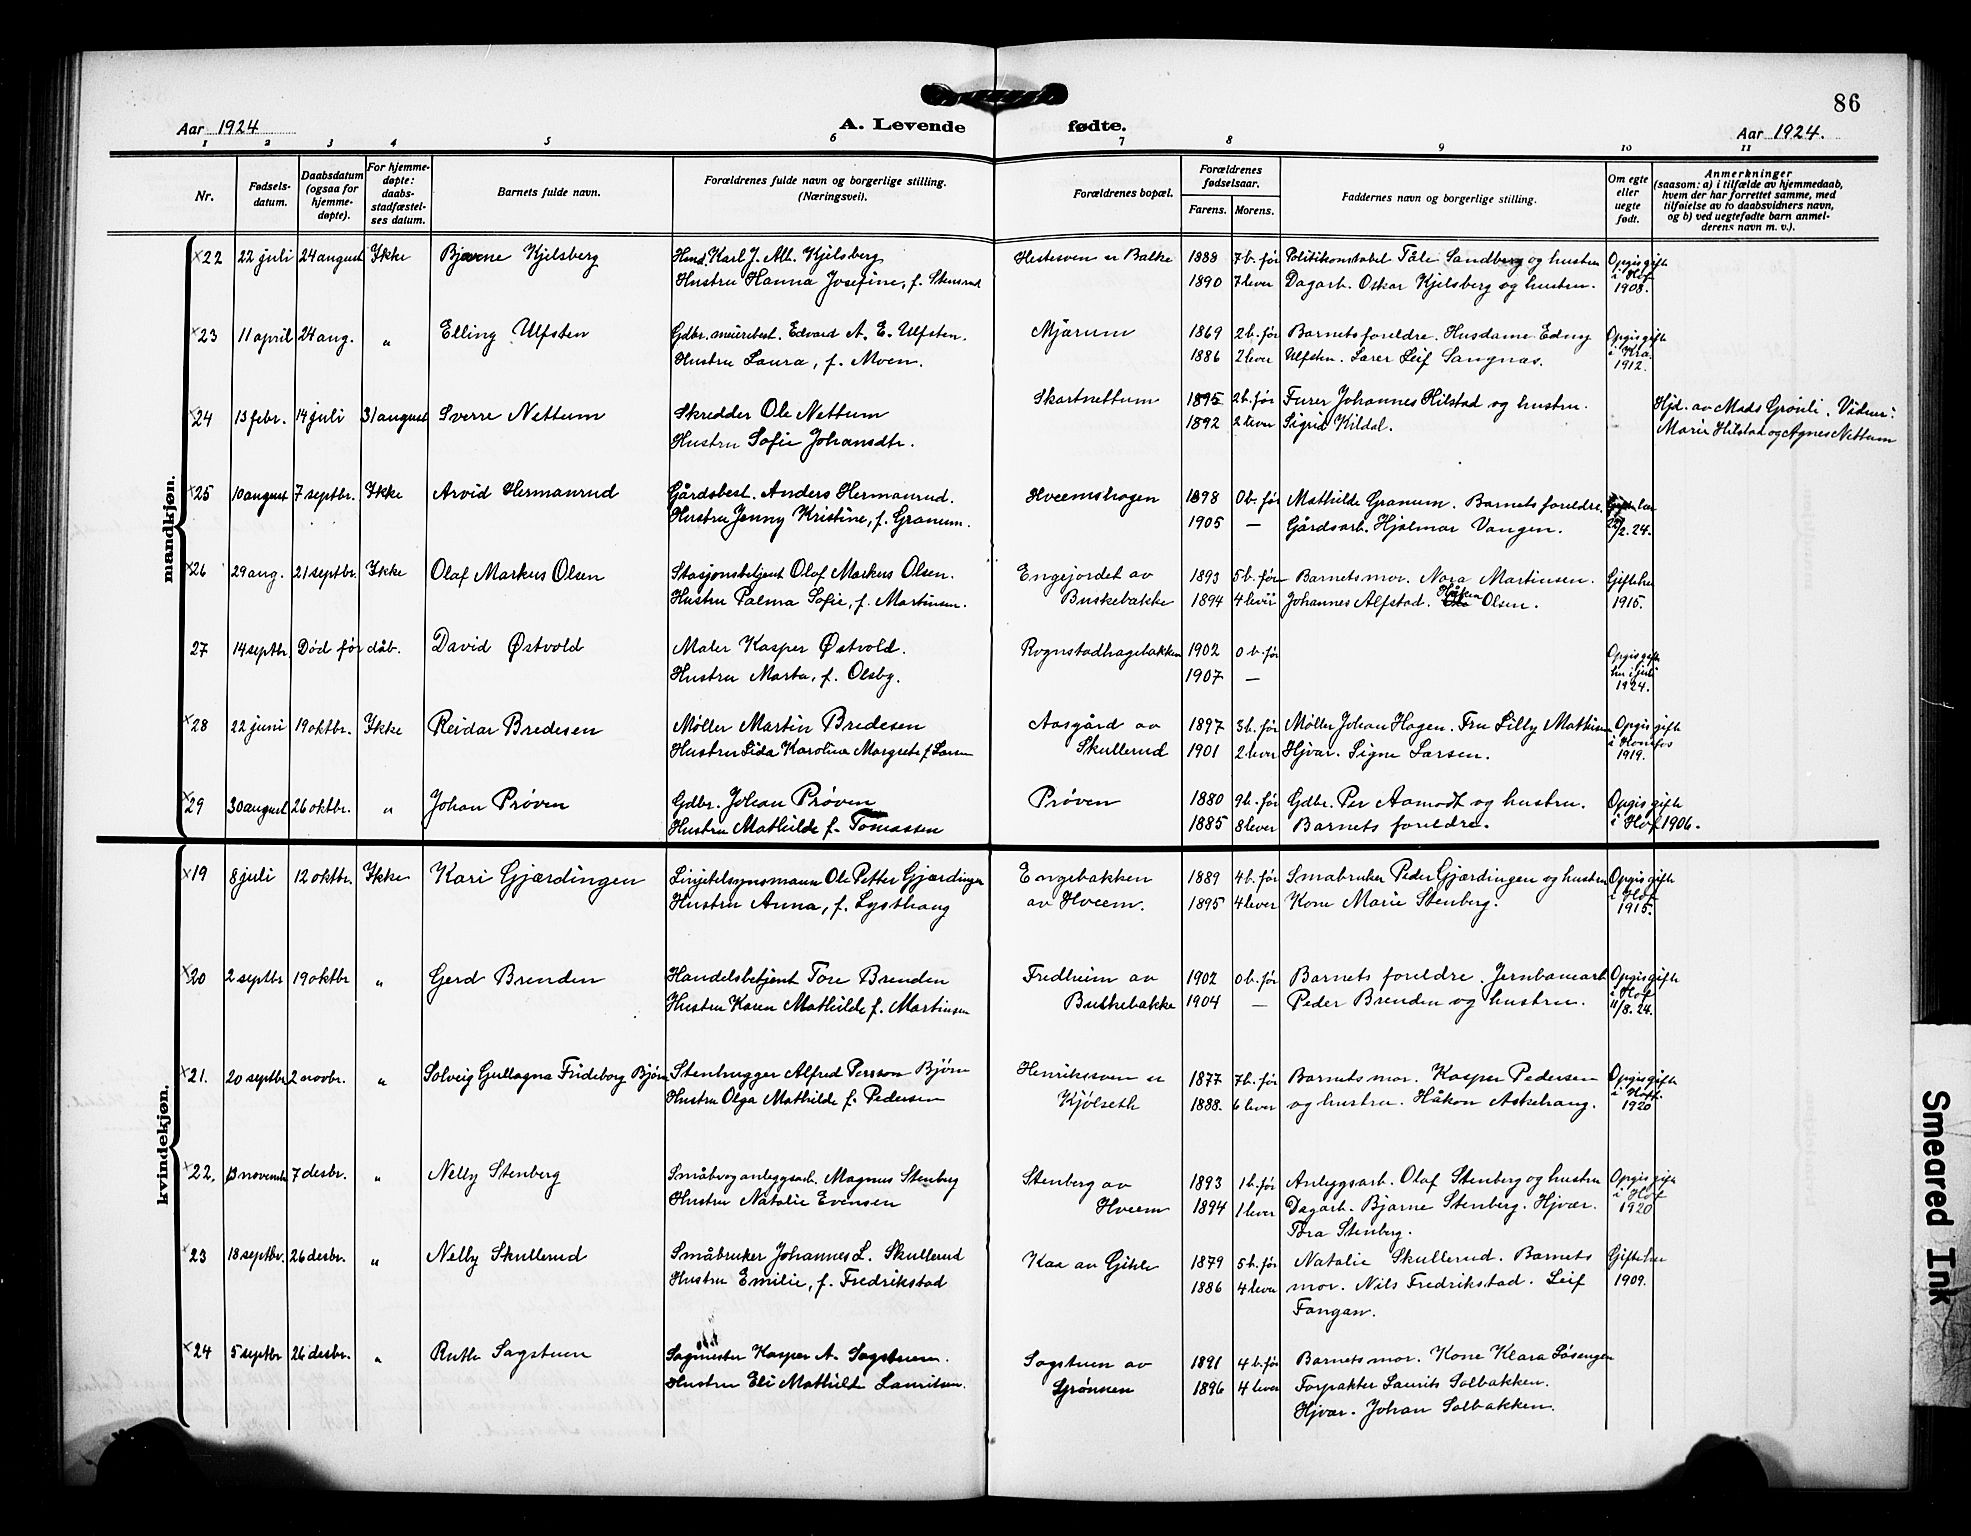 86
Aar 1924 A. Levende fødte. Aar 1924.
1 2 3 4 5 6 7 8 9 10 11
Nr. Fødsels-datum. Daabsdatum (ogsaa for hjemme-døpte). For hjemme-døpte: daabs-stadfæstel-ses datum. Barnets fulde navn. Forældrenes fulde navn og borgerlige stilling. (Næringsvei). Forældrenes bopæl. Forældrenes fødselsaar. Farens. Morens. Faddernes navn og borgerlige stilling. Om egte eller uegte født. Anmerkninger (saasom: a) i tilfælde av hjemmedaab, hvem der har forrettet samme, med tilføielse av to daabsvidners navn, og b) ved uegtefødte barn anmel-derens navn m. v.).
mandkjøn.
×22 22 juli 24 august Ikke Bjarne Kjelsberg Karl J. Alb. Kjelsberg Hestesven u Balke 1888 7 b. før Politikonstabel Tåle Sandberg og hustru Opgis gifte
Hustru Hanna Josefine, f. Stensrud 1890 7 lever Dagarb. Oskar Kjelsberg og hustru. i Hof 1908.
×23 11 april 24 aug. " Elling Ulfsten Gdbr. meieribest. Edvard A. E. Ulfsten. Mjørum 1869 2 b. før Barnets foreldre. Husdame Edny Opgis gifte
Hustru Laura, f. Moen. 1886 2 lever Ulfsten. Lærer Leif Sangnæs. i Kra. 1912.
×24 13 febr. 14 juli 31 august Sverre Nettum Skredder Ole Nettum Skartnettum 1895 2 b. før Furer Johannes Hilstad og hustru. Hjd. av Mads Grønli. Vidner:
Hustru Sofie Johansdtr. 1892 2 lever Sigrid Kildal. Marie Hilstad og Agnes Nettum
×25 10 august 7 septbr. Ikke Arvid Hermanrud Gårdsbest. Anders Hermanrud. Hveemshagen 1898 0 b. før Mathilde Granum. Barnets foreldre. Gifte her
Hustru Jenny Kristine, f. Granum. 1905 — Gårdsarb. Hjalmar Vangen. /2. 24.
×26 29 aug. 21 septbr. Ikke Olaf Markus Olsen Stasjonsbetjent Olaf Markus Olsen. Engejordet av 1893 5 b. før Barnets mor. Nora Martinsen. Gifte her
Hustru Palma Sofie, f. Martinsen. Buskebakke 1894 4 lever Johannes Alfstad. Håkon Olsen. 1915.
27 14 septbr. Død før dåb. David Østvold Maler Kasper Østvold. Rognstadhagebakken 1902 0 b. før Opgis gifte
Hustru Marta, f. Olsby. 1907 — her i juli 1924.
×28 22 juni 19 oktbr. Ikke Reidar Bredesen Møller Martin Bredesen Aasgård av 1897 3 b. før Møller Johan Hagen. Fru Lilly Mathisen Opgis gifte
Hustru Lida Karoline Margrete f. Larsen Skullerud 1901 2 lever Hjvar. Signe Larsen. i Honefos 1919.
×29 30 august 26 oktbr. " Johan Prøven Gdbr. Johan Prøven Prøven 1880 9 b. før Gdbr. Per Aamodt og hustru. Opgis gifte
Hustru Mathilde f. Tomassen 1885 8 lever Barnets foreldre. i Hof 1906.
kvindekjøn.
×19 8 juli 12 oktbr. Ikke Kari Gjærdingen Linjetilsynsmann Ole Petter Gjærdingen Engebakken 1889 4 b. før Småbruker Peder Gjærdingen og hustru Opgis gifte
Hustru Anna, f. Lysthaug av Hveem. 1895 4 lever Kone Marie Stenberg. i Hof 1915.
×20 2 septbr 19 oktbr " Gerd Brenden Handelsbetjent Tore Brenden Fredheim av 1902 0 b. før Barnets foreldre. Jernbanearb Opgis gifte
Hustru Karen Mathilde f. Martinsen Buskebakke 1904 — Peder Brenden og hustru. i Hof 11/8. 24.
×21. 20 septbr 2 novbr. " Solveig Gullagna Frideborg Bjørn Stenhugger Alfred Persson Bjørn Henriksven u 1877 7 b. før Barnets mor. Kasper Pedersen Opgis gifte
Hustru Olga Mathilde f. Pedersen Kjølseth 1888. 6 lever og hustru. Håkon Askehaug. i Hof. 1920
×22. 13 novemb 7 desbr. " Nelly Stenberg Småbr. og anleggsarb. Magnus Stenberg Stenberg av 1893 1 b. før Anleggsarb. Olaf Stenberg og hustru Opgis gifte
Hustru Natalie Evensen Hveem 1894 1 lever Dagarb. Bjarne Stenberg. Hjvær. i Hof 1920
Tora Stenberg.
×23 18 septbr. 26 desbr. " Nelly Skullerud Småbruker Johannes L. Skullerud Kaa av Gihle 1879 5 b. før Natalie Skullerud. Barnets Gifte her
Hustru Emilie, f. Fredrikstad 1886 4 lever mor. Nils Fredrikstad. Leif 1909.
Fangan.
×24 5 septbr 26 desbr. " Ruth Sagstuen Sagmester Kasper A. Sagstuen. Sagstuen av 1891 4 b. før Barnets mor. Kone Klara Løsengen
Hustru Eli Mathilde Lauritsen. Grønnen 1896 4 lever Forpakter Laurits Solbakken.
Hjvar. Johan Solbakken.
Smeared Ink